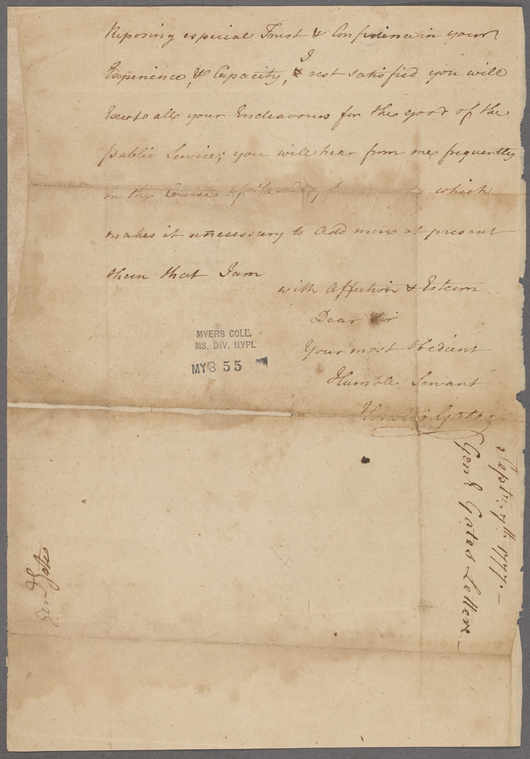 Reposing especial Trust & Confidence in your
I
Experience, & Capacity, & rest satisfied you will
Exert all your Endeavours for the good of the
public Service; you will hear from me frequently
in the Course of the which
makes it unnecessary to add more at present
than that I am
with Affection & Esteem
Dear Sir
Your most Obedient
Humble Servant
Horatio Gates
MYERS COLL.
MS. DIV. NYPL
MY 3 55
Sept. 7th. 1777.—
Genl. Gates Letter—